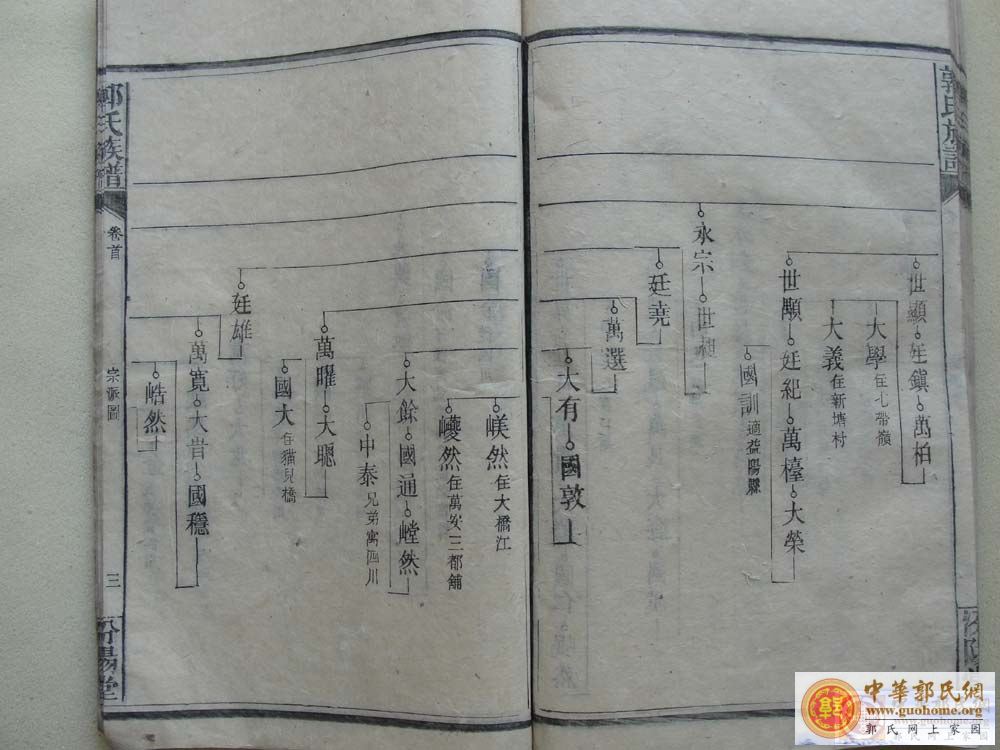 郭氏族譜
世顯 廷鎮 萬柏
大學 住七帶嶺
大義 在新塘村
世顒 廷紀 萬檯 大榮
國訓 適益陽縣
永宗 世昶
廷堯
萬選
大有 國敦 上
嵄然 住大橋江
巎然 住萬安三都鋪
大餘 國通 嵿然
中泰 兄弟寓四川
萬曜 大驄
國大 在貓兒橋
廷雄
萬寬 大昔 國穩
峼然
郭氏族譜
卷首
宗派圖
三
汾陽堂
中華郭氏網
www.guohome.org
郭氏網上家園